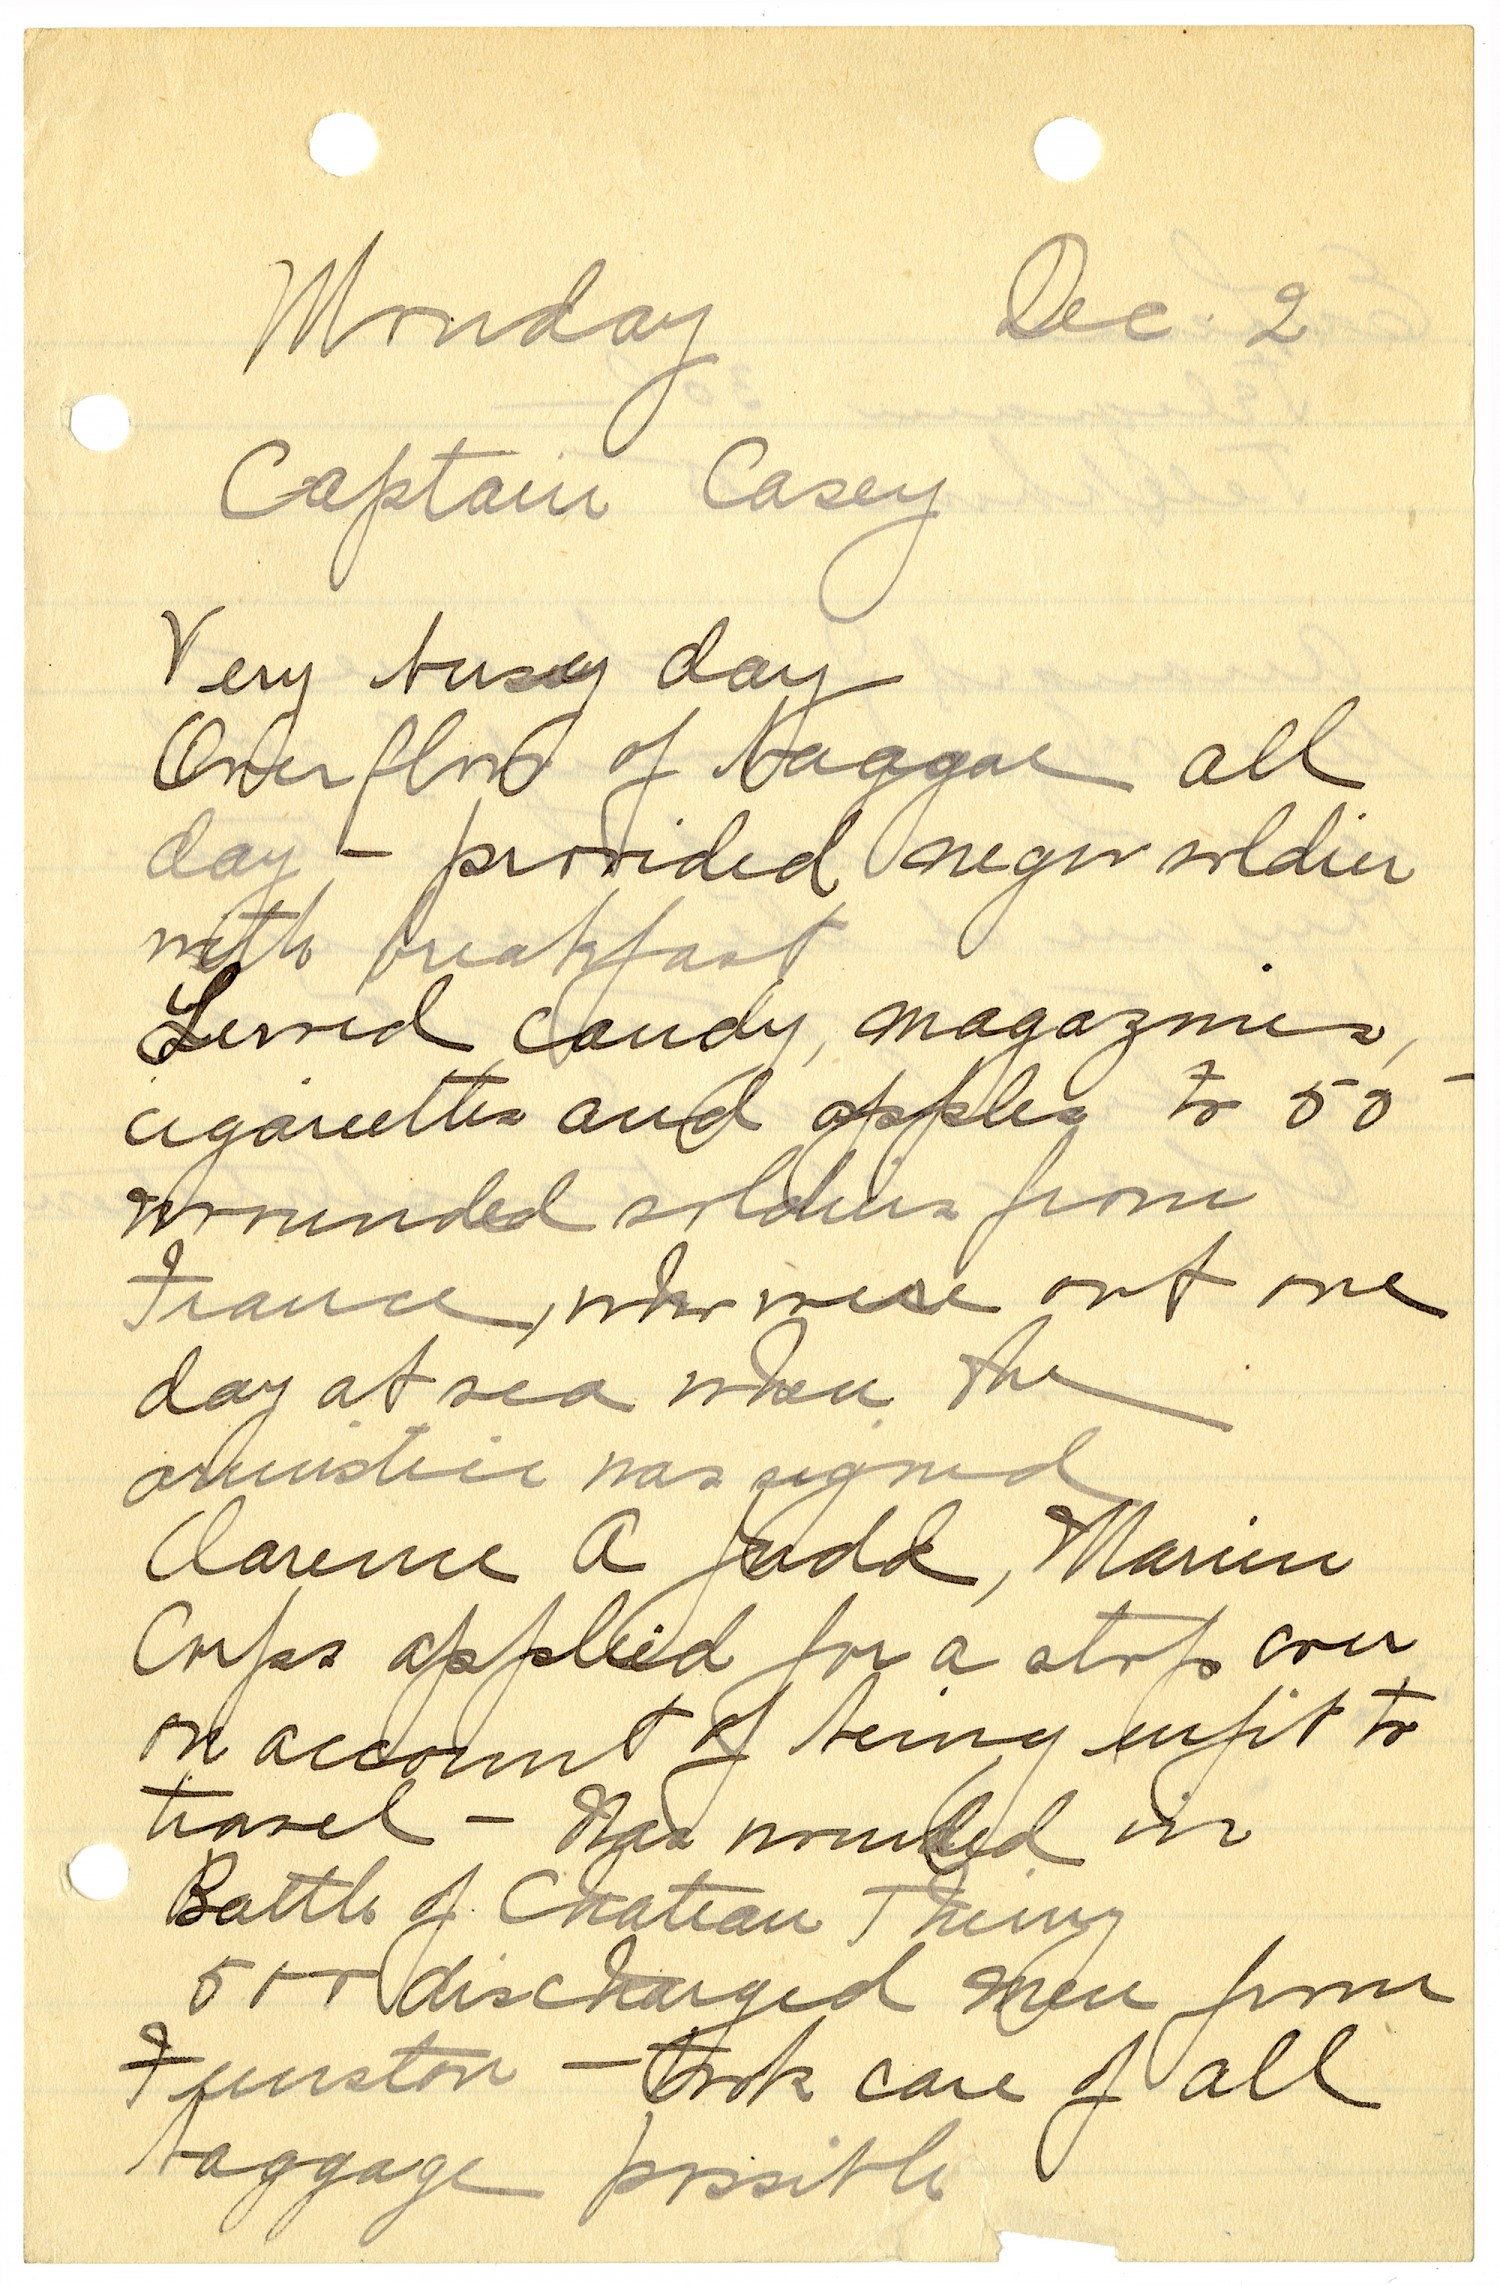 Monday Dec. 2
Captain Casey
Very busy day
Overflow of baggae all
day – provided negro soldier
with breakfast
Served candy, magazines,
cigarettes and apples to 50
wounded soldiers from
France, who were out one
day at sea when the
armistice was signed
Clarence A Judd, Marine
Corps applied for a stop over
on account of being unfit to
travel – Was wounded in
Battle of Chateau Thiery
500 discharged men from
Funston – took care of all
baggage possible